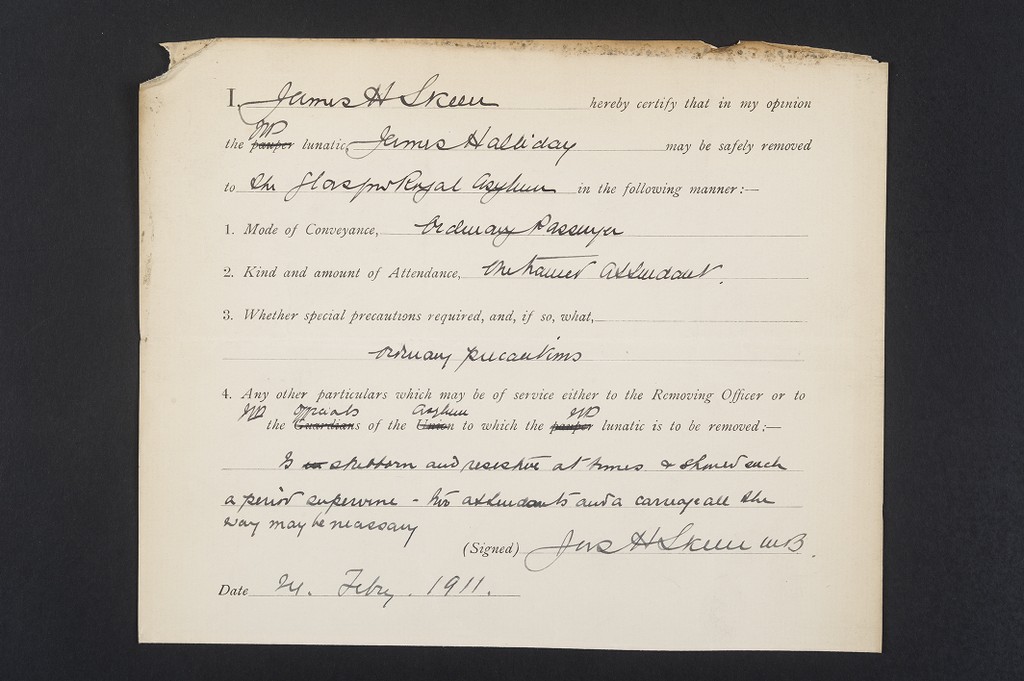 I, James H Skeen hereby certify that in my opinion
the pauper lunatic, James Halliday may be safely removed
to the Glasgow Royal Asylum in the following manner:—
1. Mode of Conveyance, Ordinary Passenger
2. Kind and amount of Attendance, One trained attendant.
3. Whether special precautions required, and, if so, what,
ordinary precautions
4. Any other particulars which may be of service either to the Removing Officer or to
Officials Asylum
the Guardians of the Union to which the pauper lunatic is to be removed:—
Is stubborn and resistive at times & should such
a period supervene - two attendants and a carriage all the
way may be necessary
(Signed) Jas H Skeen MB.
Date Feby. 1911.